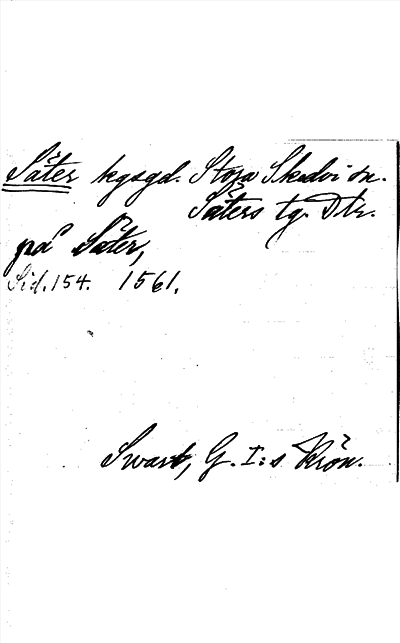 Säter kgsgd. Stora Skedvi sn.
Säters tg. Dlr.
på Säter,
Sid. 154. 1561.
Swart, G. I:s Krön.